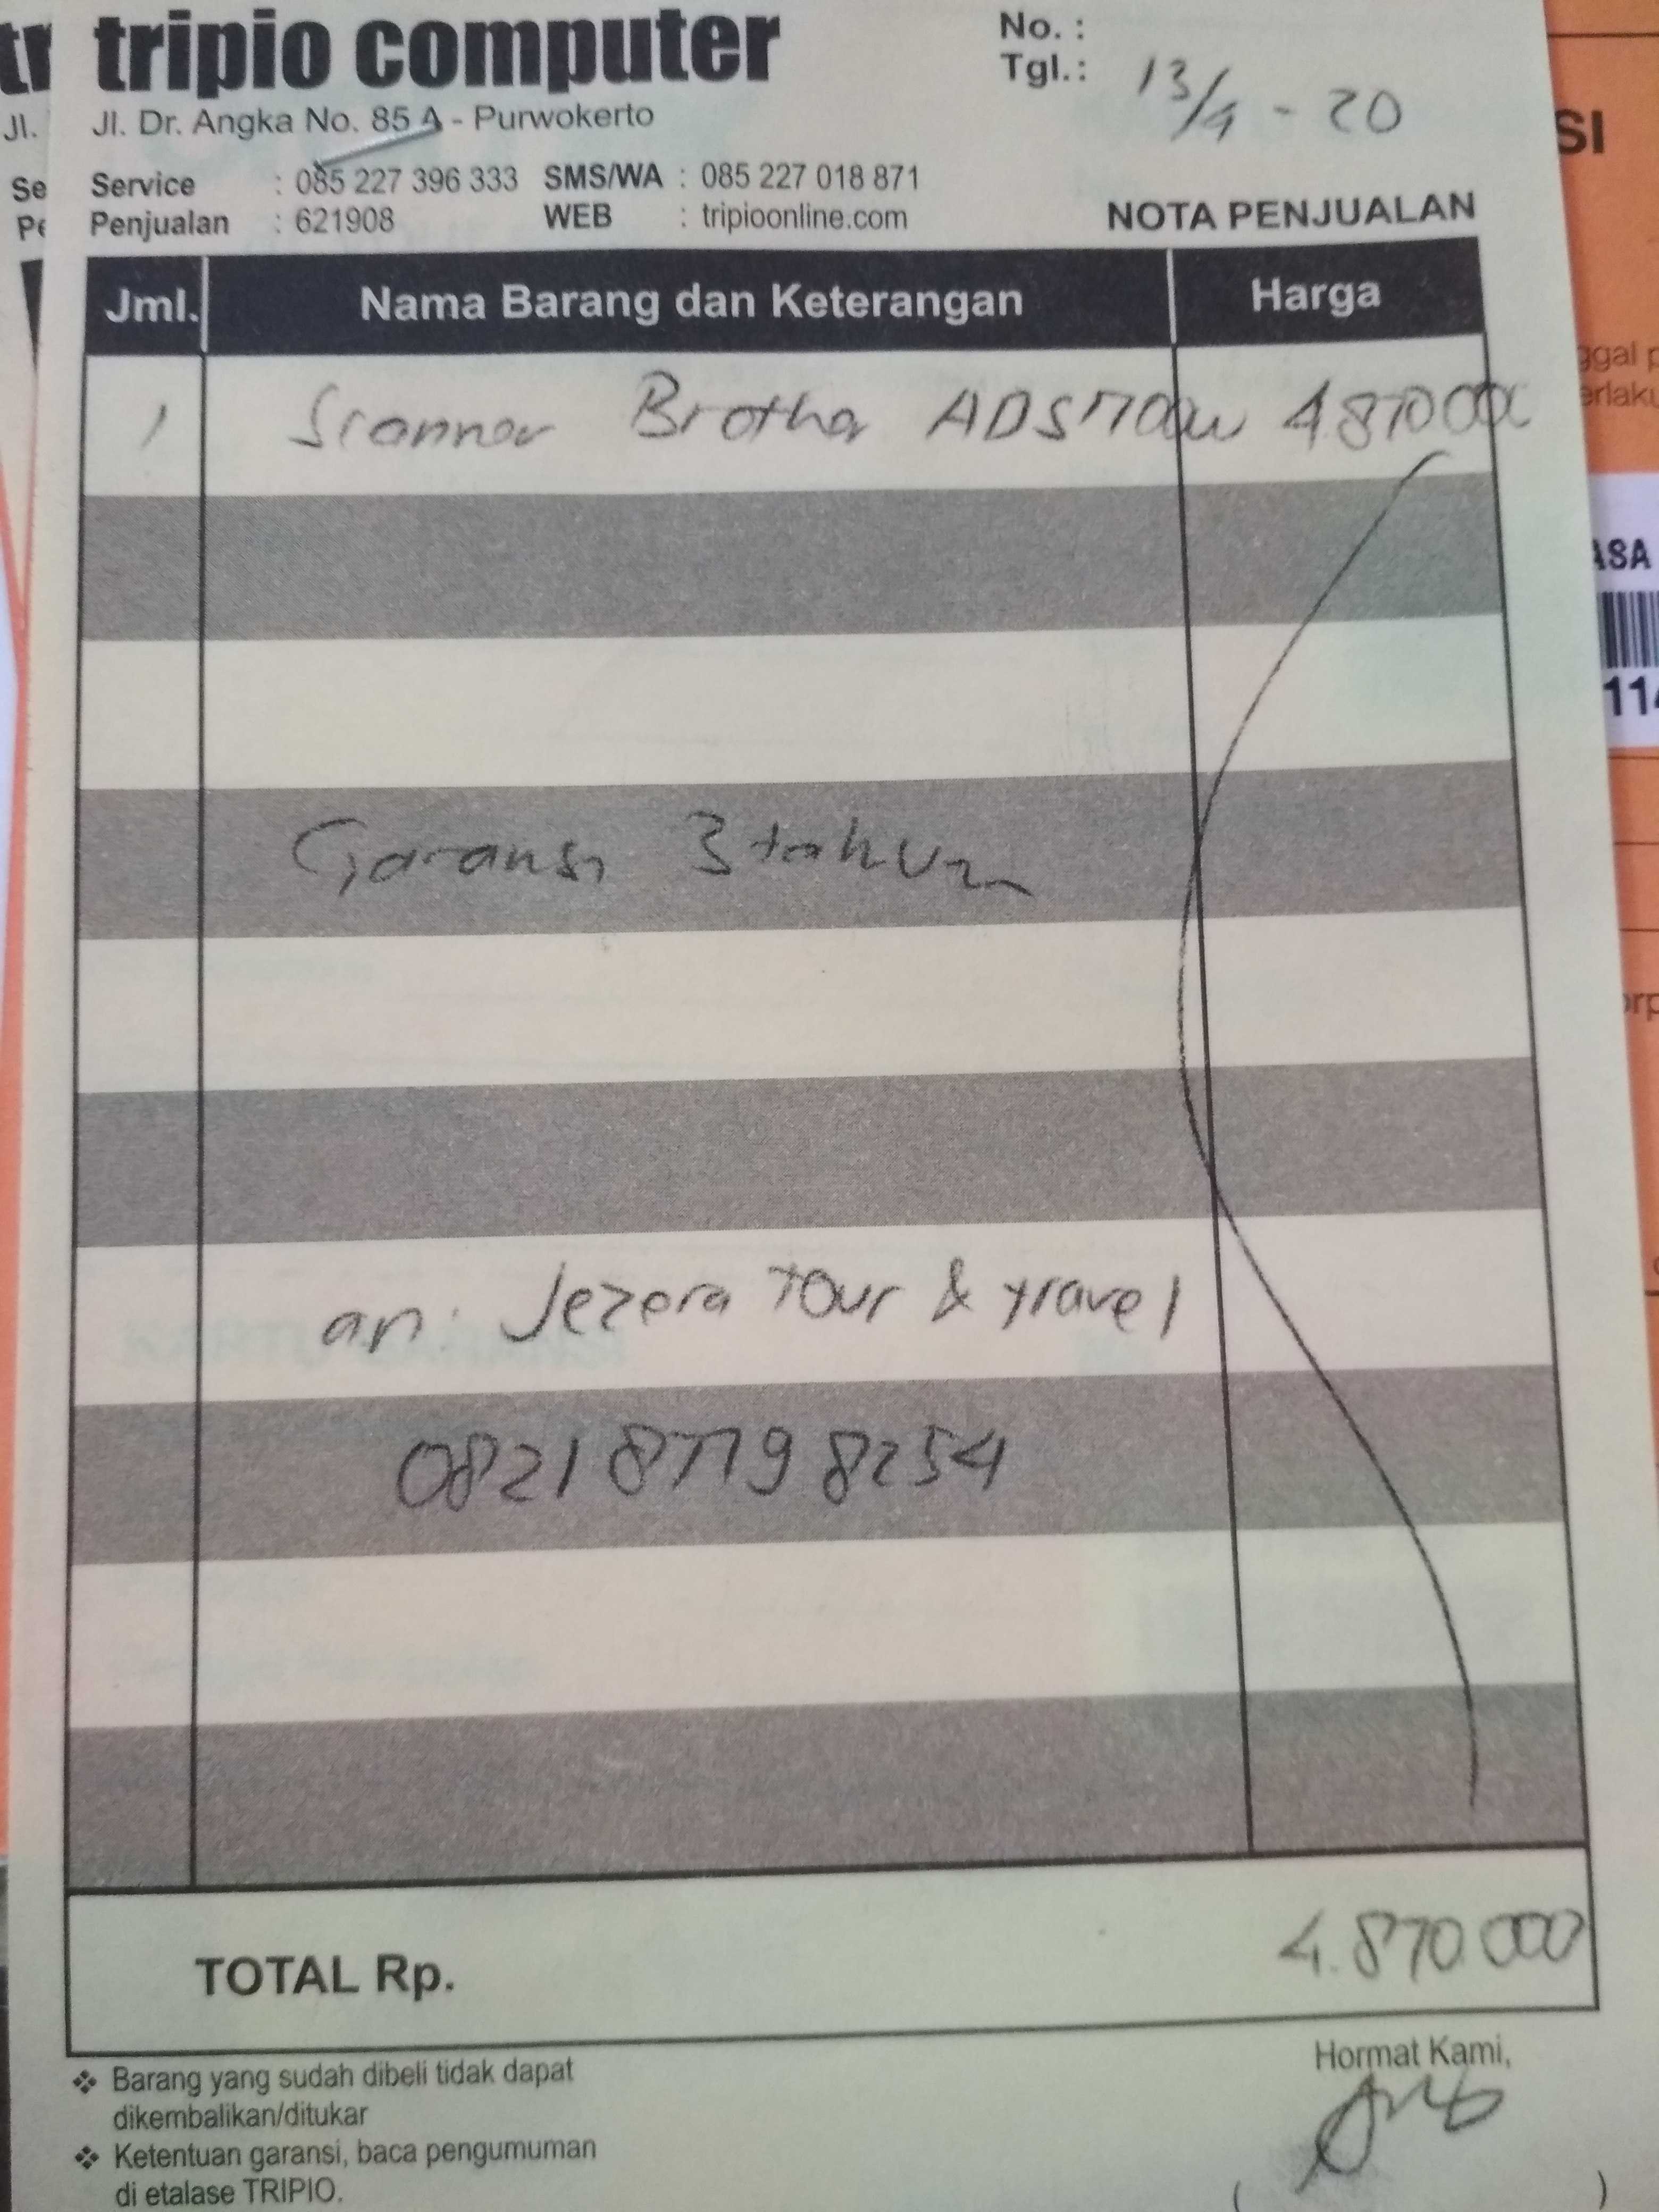 tripio computer
Jl. Dr. Angka No. 85 A - Purwokerto
No. :
Tgl.: 13/4 - 20
Service : 085 227 396 333 SMS/WA : 085 227 018 871
Penjualan : 621908 WEB : tripioonline.com
NOTA PENJUALAN
Jml. Nama Barang dan Keterangan Harga
1 Scanner Brother ADS1700w 4.870.000
Garansi 3 tahun
an. Jezera Tour & travel
0821 8779 8254
TOTAL Rp. 4.870.000
❖ Barang yang sudah dibeli tidak dapat
dikembalikan/ditukar
❖ Ketentuan garansi, baca pengumuman
di etalase TRIPIO.
Hormat Kami,
( )
tr
Jl.
Se
Pe
SI
ggal p
erlaku
ASA
114
orp